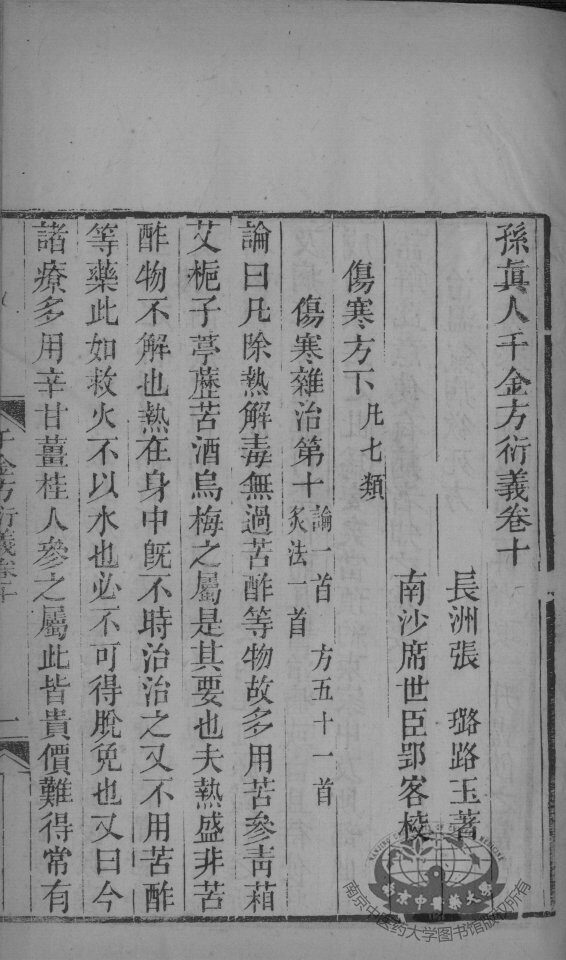 孫眞人千金方衍義卷十
長洲張　璐路玉著
南沙席世臣郢客校
傷寒方下 凡七類
傷寒雜治第十 論一首　方五十一首
灸法一首
論曰凡除熱解毒無過苦酢等物故多用苦參青葙
艾梔子葶藶苦酒烏梅之屬是其要也夫熱盛非苦
酢物不解也熱在身中旣不時治治之又不用苦酢
等藥此如救火不以水也必不可得脫免也又曰今
諸療多用辛甘薑桂人參之屬此皆貴價難得常有
千金方衍義卷十
一
南京中醫藥大學
南京中医药大学图书馆版权所有